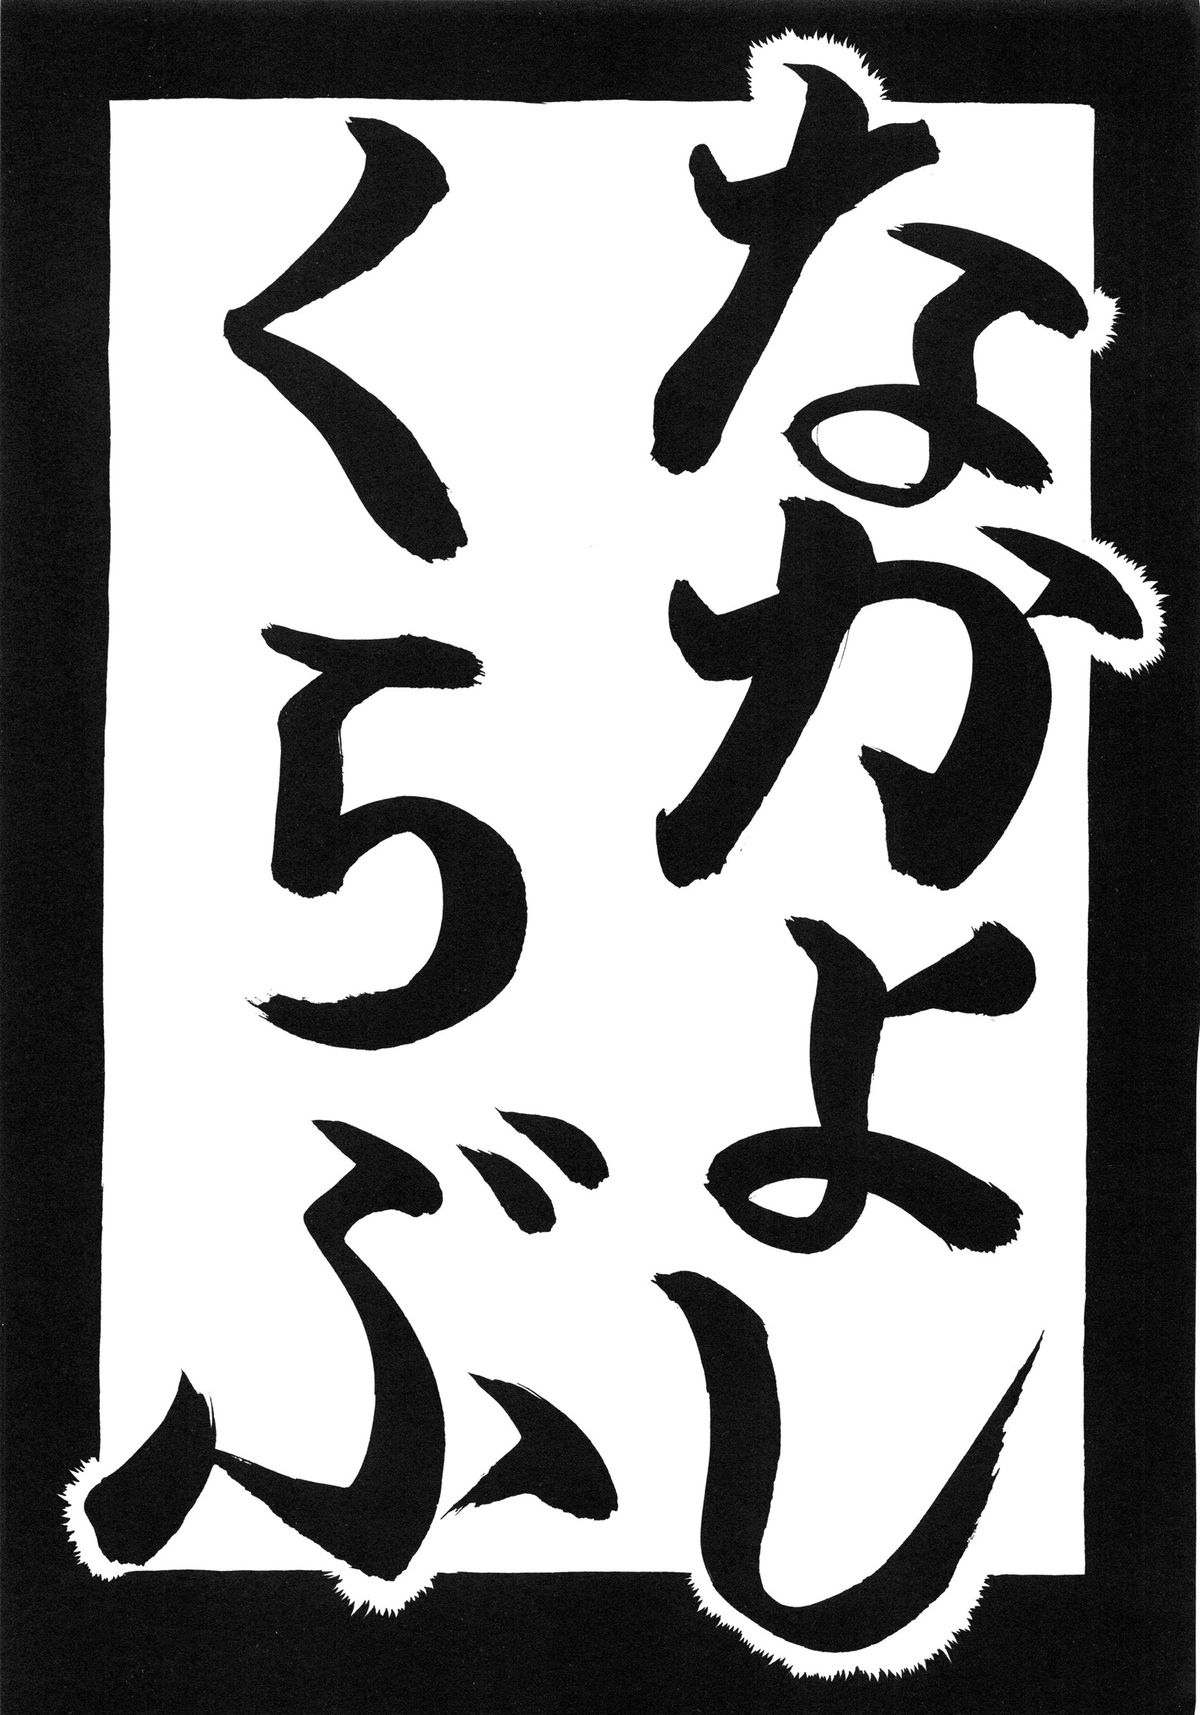 なかよし
くらぶ